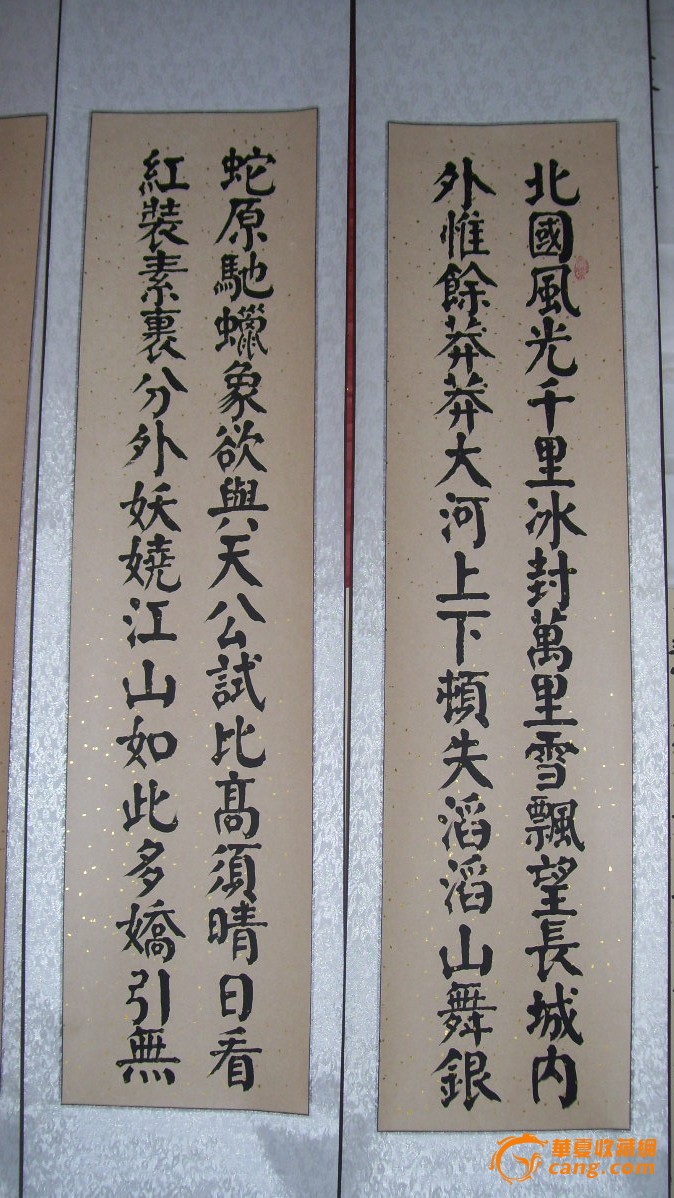 北國風光千里冰封萬里雪飄望長城內
外惟餘莽莽大河上下頓失滔滔山舞銀
蛇原馳蠟象欲與天公試比高須晴日看
紅裝素裹分外妖嬈江山如此多嬌引無
華夏收藏網
cang.com